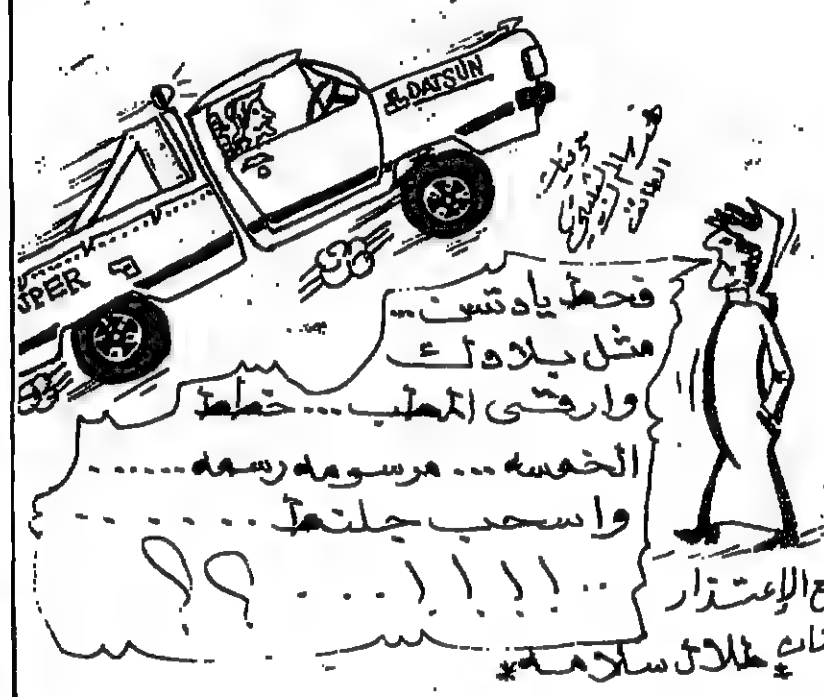 DATSUN
UPER
فحط يا دتسن...
مثل بلادك
وارقى المطب... خطط
الخمسه... مرسومه رسمه......
واسحب جلنط.......
..!!!!...؟؟
ع الإعتذار
طلال سلامه*